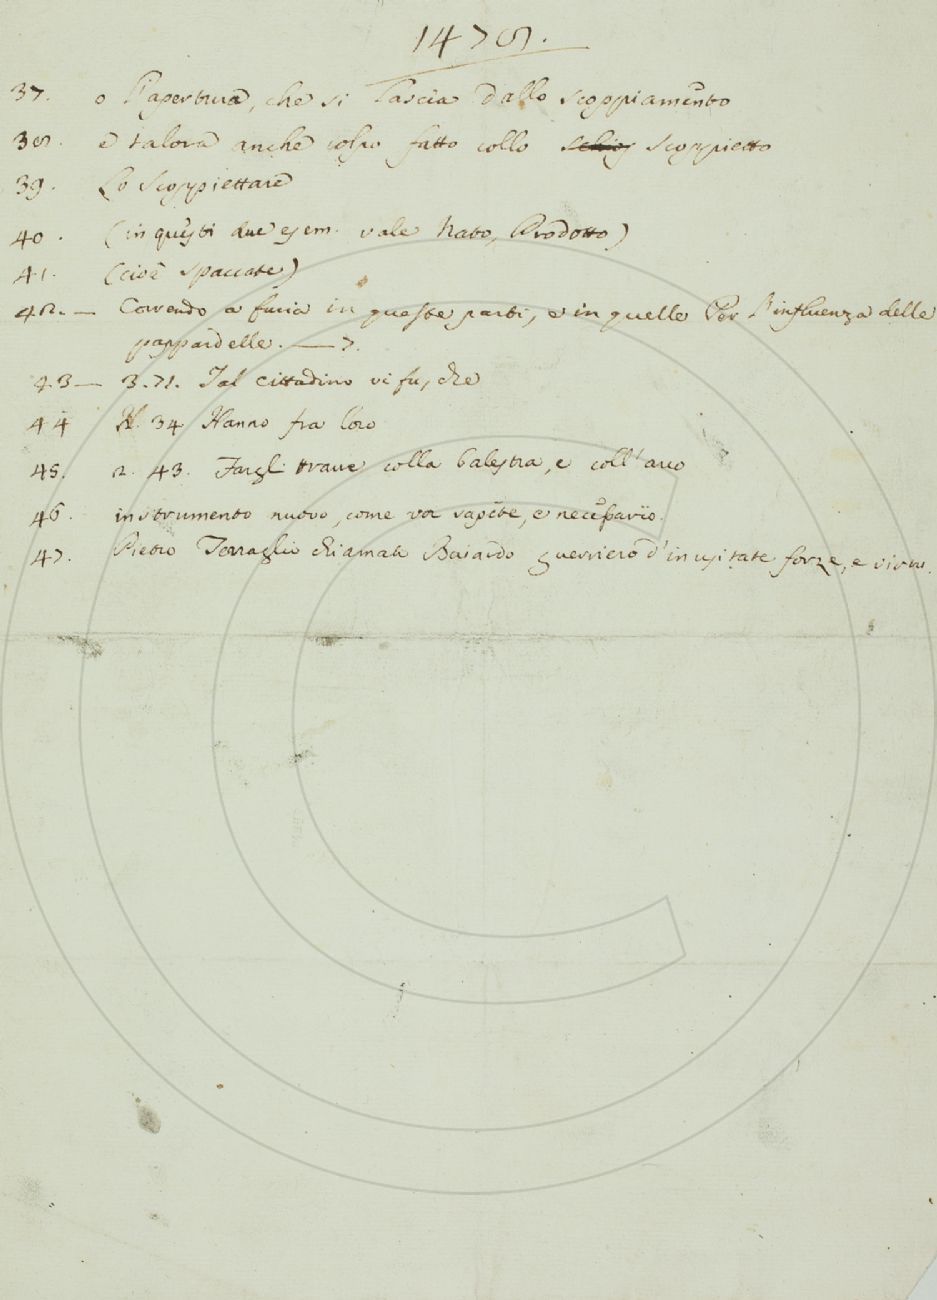 1478.
37. o l'apertura, che si lascia dallo scoppiamento
38. e talora anche colpo fatto collo schiop scoppietto
39. Lo Scoppiettare
40. (in questi due esem. vale Nato, Prodotto)
41. (cioè spaccate)
42. — Correndo a furia in queste parti, e in quelle Per l'influenza delle
pappardelle. — 7.
43 — 3.71. Tal cittadino vi fu, che
44 N. 34 Hanno fra loro
45. 2. 43. Fargli trarre colla balestra, e coll'arco
46. instrumento nuovo, come voi sapete, e necessario.
47. Pietro Terraglio chiamato Baiardo guerriero d'inusitate forze, e virtu.